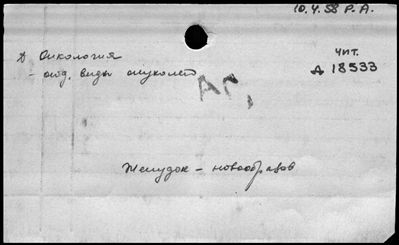 10.4.58 Р.А.
чит.
Д 18533
Онкология
- отд. виды опухолей
АГ,
Желудок - новообразов